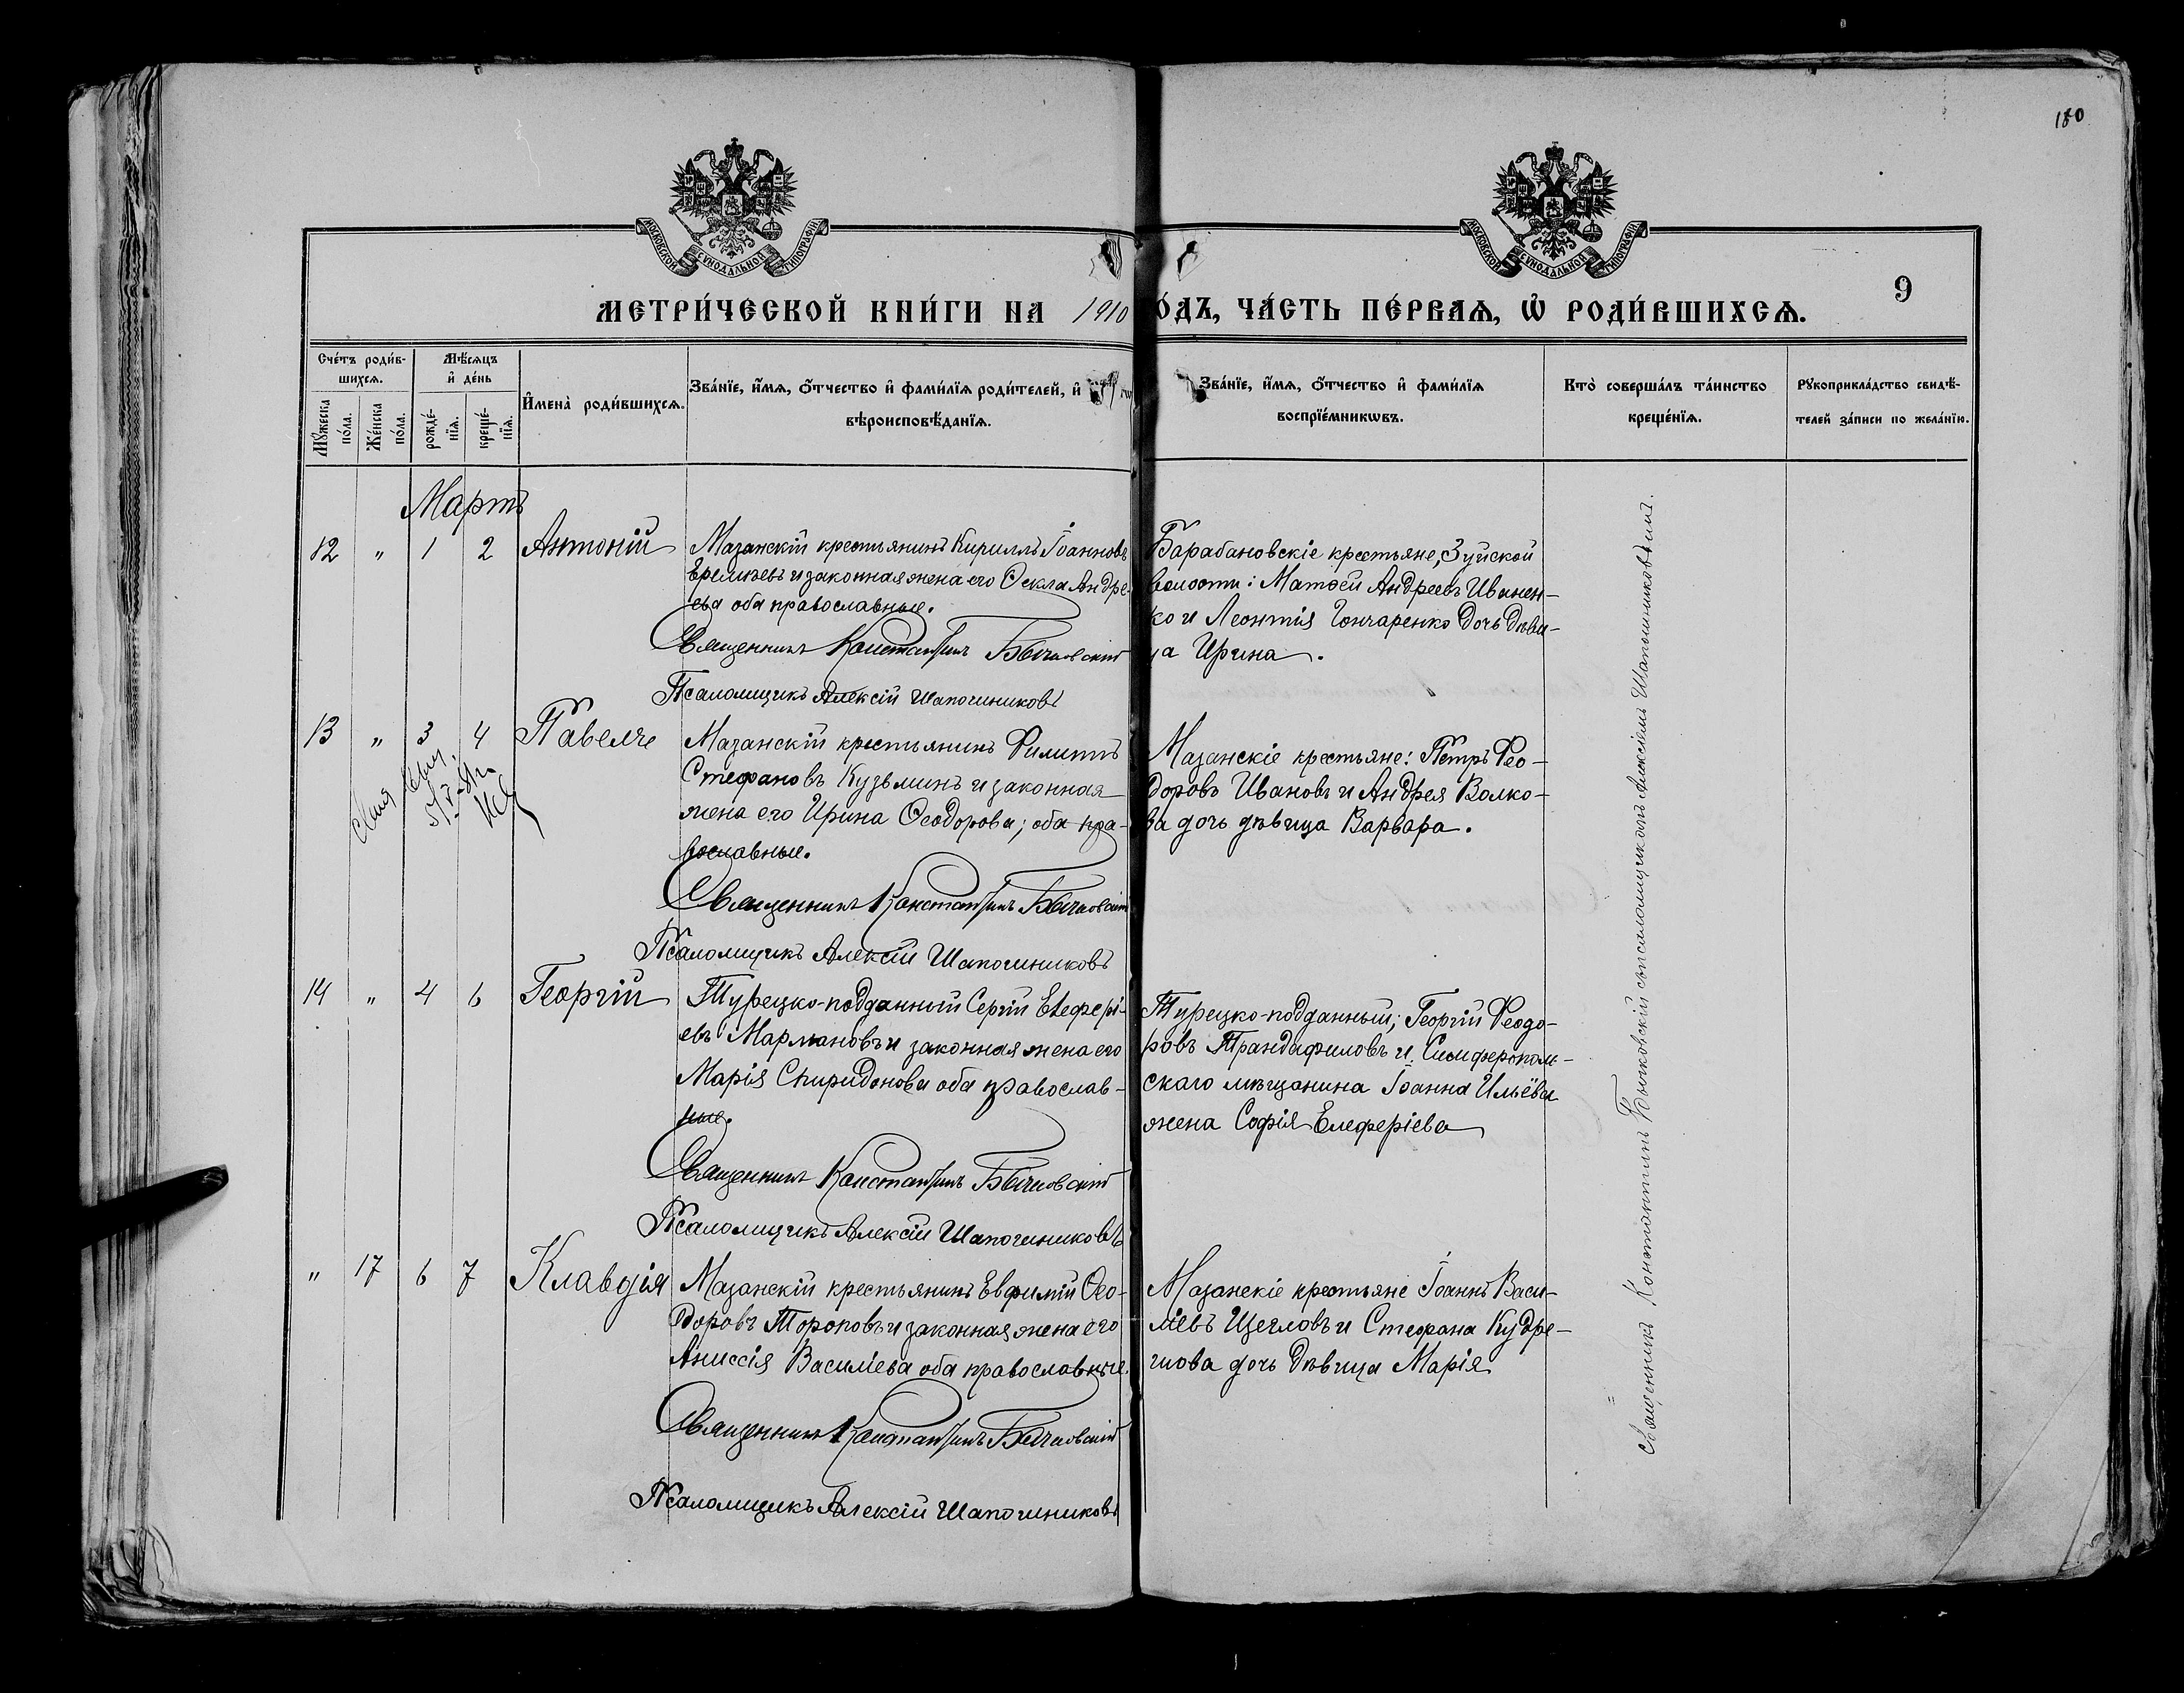 180
МОСКОВСКОЙ СѴНОДАЛЬНОЙ ТИПОГРАФІИ
МОСКОВСКОЙ СѴНОДАЛЬНОЙ ТИПОГРАФІИ
9
МЕТРИ́ЧЕСКОЙ КНИ́ГИ НА 1910 ́ОДЪ, ЧА́СТЬ ПЕ́РВАѦ, Ѡ҆ РОДИ́ВШИХСѦ.
Сче́тъ роди́вшихсѧ.
Мꙋ́жеска по́ла.
Же́нска по́ла.
Мѣ́сѧцъ и҆ де́нь
рожде́нїѧ.
креще́нїѧ.
И҆мена̀ роди́вшихсѧ.
Зва́нїе, и҆́мѧ, ѻ҆́тчество и҆ фами́лїѧ роди́телей, и҆
вѣроисповѣ́данїѧ.
Зва́нїе, и҆́мѧ, ѻ҆́тчество и҆ фами́лїѧ
воспрїе́мникѡвъ.
Кто̀ соверша́лъ та́инство
креще́нїѧ.
Рꙋкоприкла́дство свидѣ́-
телей за́писи по жела́нїю.
Мартъ
12 " 1 2 Антоній
Мазанскій крестьянинъ Кириллъ Іоанновъ
Еремѣевъ и законная жена его Ѳекла Андре-
ева оба православные.
Священникъ Константинъ Бычковскій
Псаломщикъ Алексій Шапошниковъ
Барабановскіе крестьяне, Зуйской
волости: Матѳей Андреевъ Иванен-
ко и Леонтія Гончаренко дочь дѣви-
ца Ирина.
13 " 3 4 Павелъ
Мазанскій крестьянинъ Филиппъ
Стефановъ Кузьминъ и законная
жена его Ирина Ѳеодорова; оба пра-
вославные.
Священникъ Константинъ Бычковскій
Псаломщикъ Алексій Шапошниковъ
Мазанскіе крестьяне: Петръ Фео-
доровъ Ивановъ и Андрея Волко-
ва дочь дѣвица Варвара.
14 " 4 6 Георгій
Турецко-подданный Сергій Елефері-
евъ Мармановъ и законная жена его
Марія Спиридонова оба православ-
ные.
Священникъ Константинъ Бычковскій
Псаломщикъ Алексій Шапошниковъ
Турецко-подданный; Георгій Феодо-
ровъ Трандафиловъ и Симферополь-
скаго мѣщанина Іоанна Ильёва
жена Софія Елеферіева
" 17 6 7 Клавдія
Мазанскій крестьянинъ Евфимій Ѳео-
доровъ Тороповъ и законная жена его
Аниссія Василіева оба православные.
Священникъ Константинъ Бычковскій
Псаломщикъ Алексій Шапошниковъ
Мазанскіе крестьяне Іоаннъ Васи-
ліевъ Щегловъ и Стефана Кудре-
дочь дѣвица Марія
Священникъ Константинъ Бычковскій съ псаломщикомъ Алексіемъ Шапошниковымъ.